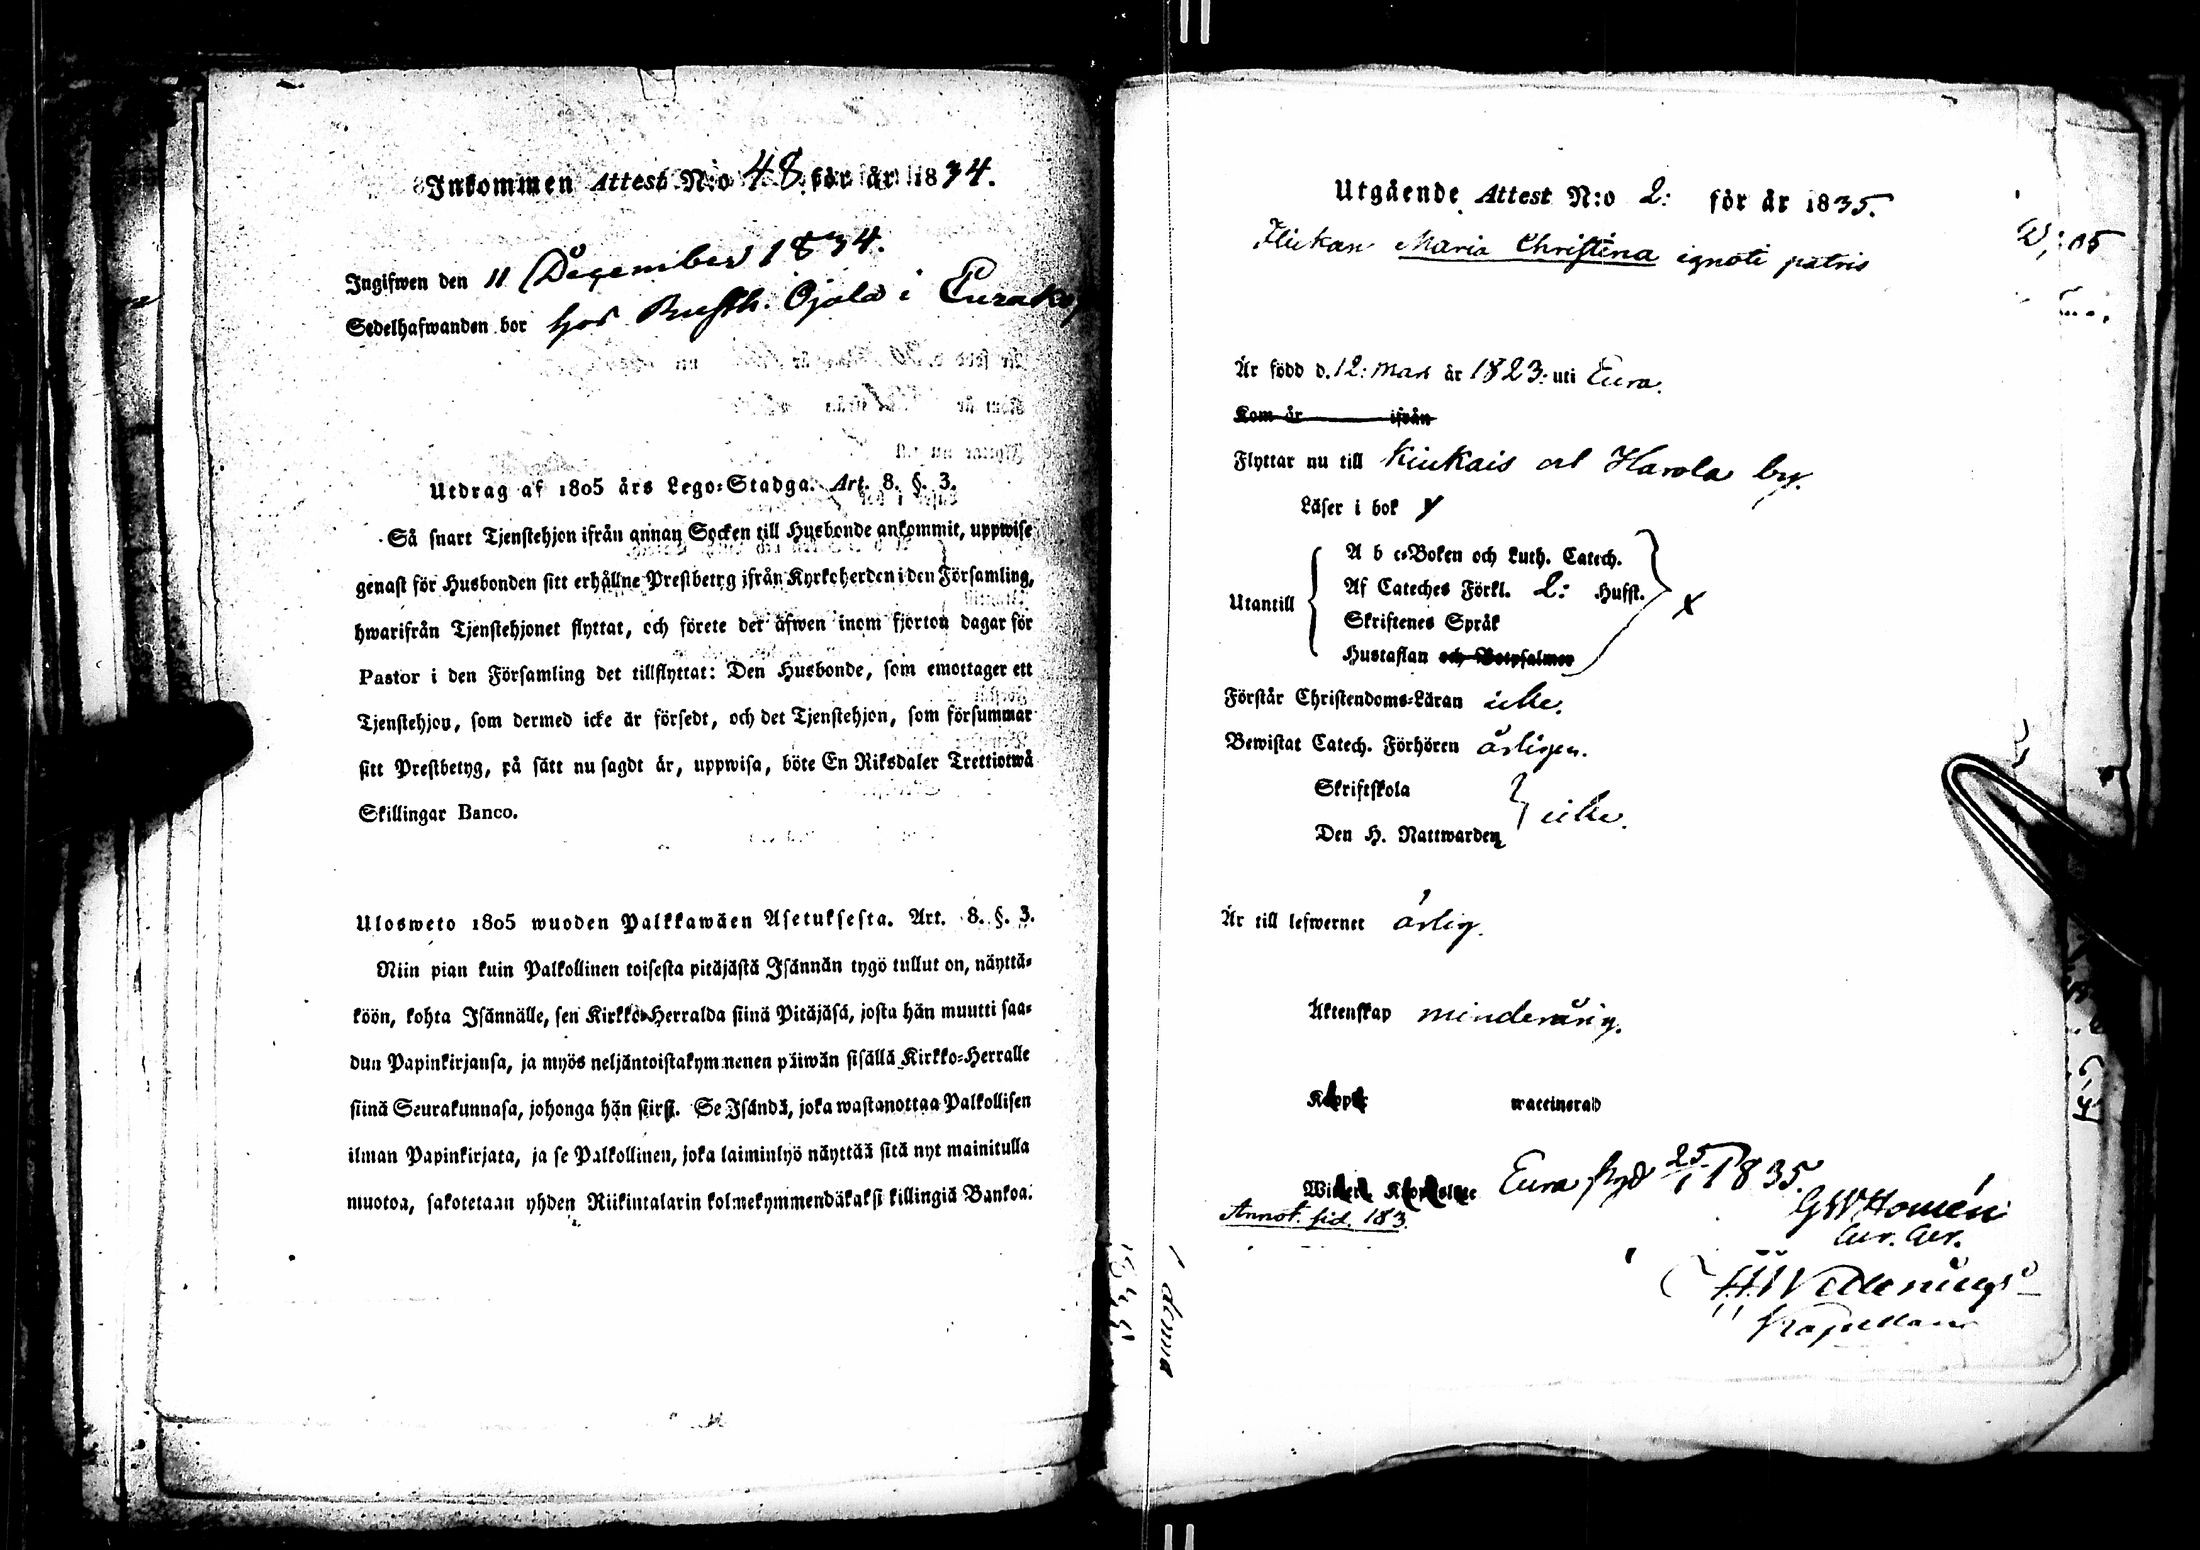 Inkommen Attest N:o 48 för år 1834.
Ingifwen den 11 December 1834.
Sedelhafwanden bor hos Rusth. Ojala i Eura
Utdrag af 1805 års Lego-Stadga. Art. 8. §. 3.
Så snart Tjenstehjon ifrån annan Socken till Husbonde ankommit, uppwise
genast för Husbonden sitt erhållne Prestbetyg ifrån Kyrkoherden i den Församling,
hwarifrån Tjenstehjonet flyttat, och förete det äfwen inom fjorton dagar för
Pastor i den Församling det tillflyttat: Den Husbonde, som emottager ett
Tjenstehjon, som dermed icke är försedt, och det Tjenstehjon, som försummar
sitt Prestbetyg, på sätt nu sagdt är, uppwisa, böte En Riksdaler Trettiotwå
Skillingar Banco.
Ulosweto 1805 wuoden Palkkawäen Asetuksesta. Art. 8. §. 3.
Niin pian kuin Palkollinen toisesta pitäjästä Isännän tygö tullut on, näyttä-
köön, kohta Isännälle, sen Kirkko-Herralda siinä Pitäjäsä, josta hän muutti saa-
dun Papinkirjansa, ja myös neljäntoistakymmenen päiwän sisällä Kirkko-Herralle
siinä Seurakunnasa, johonga hän siirst. Se Isändä, joka wastanottaa Palkollisen
ilman Papinkirjata, ja se Palkollinen, joka laiminlyö näyttää sitä nyt mainitulla
muotoa, sakotetaan yhden Riikintalarin kolmekymmendäkaksi killingiä Bankoa.
Utgående Attest N:o 2: för år 1835.
Flickan Maria Christina ignoti patris
Är född d. 12: Mars år 1823: uti Eura.
Kom år ifrån
Flyttar nu till Kiukais och Harola by.
Läser i bok
Utantill
A b c-Boken och Luth. Catech.
Af Cateches Förkl. 2: Hufst. x
Skriftenes Språk
Hustaflan och Botpsalmer
Förstår Christendoms-Läran icke.
Bewistat Catech. Förhören årligen.
Skriftskola
Den H. Nattwarden icke.
Är till lefwernet ärlig.
Äktenskap minderårig.
Koppor waccinerad
Eura 25/1 1835.
Annot. sid. 183.
GW Homén
Kapellan